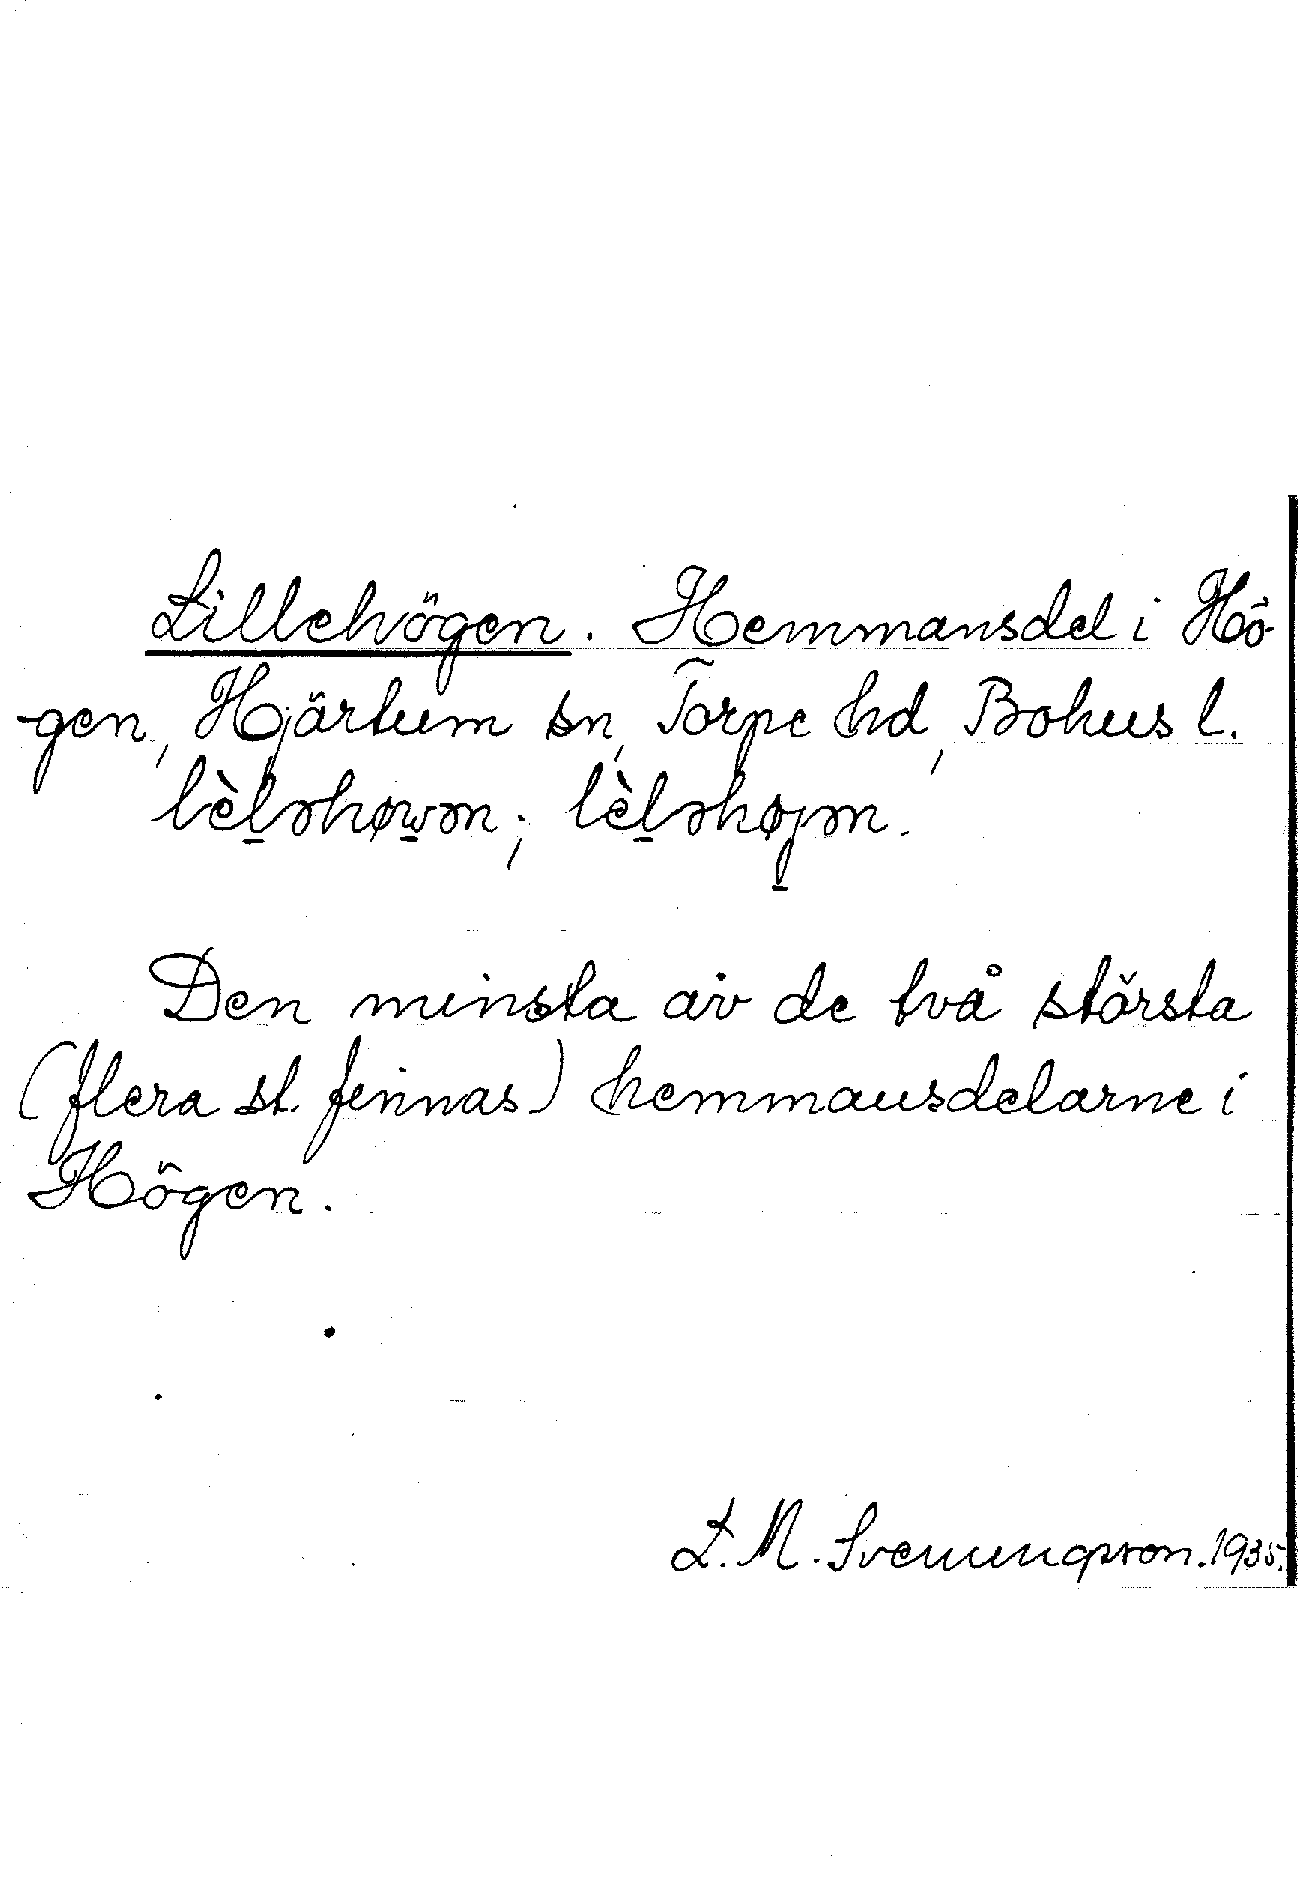 Lillehögen. Hemmansdel i Hö-
gen, Hjärtum sn, Torpe hd, Bohus l.
lèl̲əhøw̲ən; lèl̲əhøj̲ən.
Den minsta av de två största
(flera st. finnas) hemmansdelarne i
Högen.
L. M. Svenungsson. 1935.